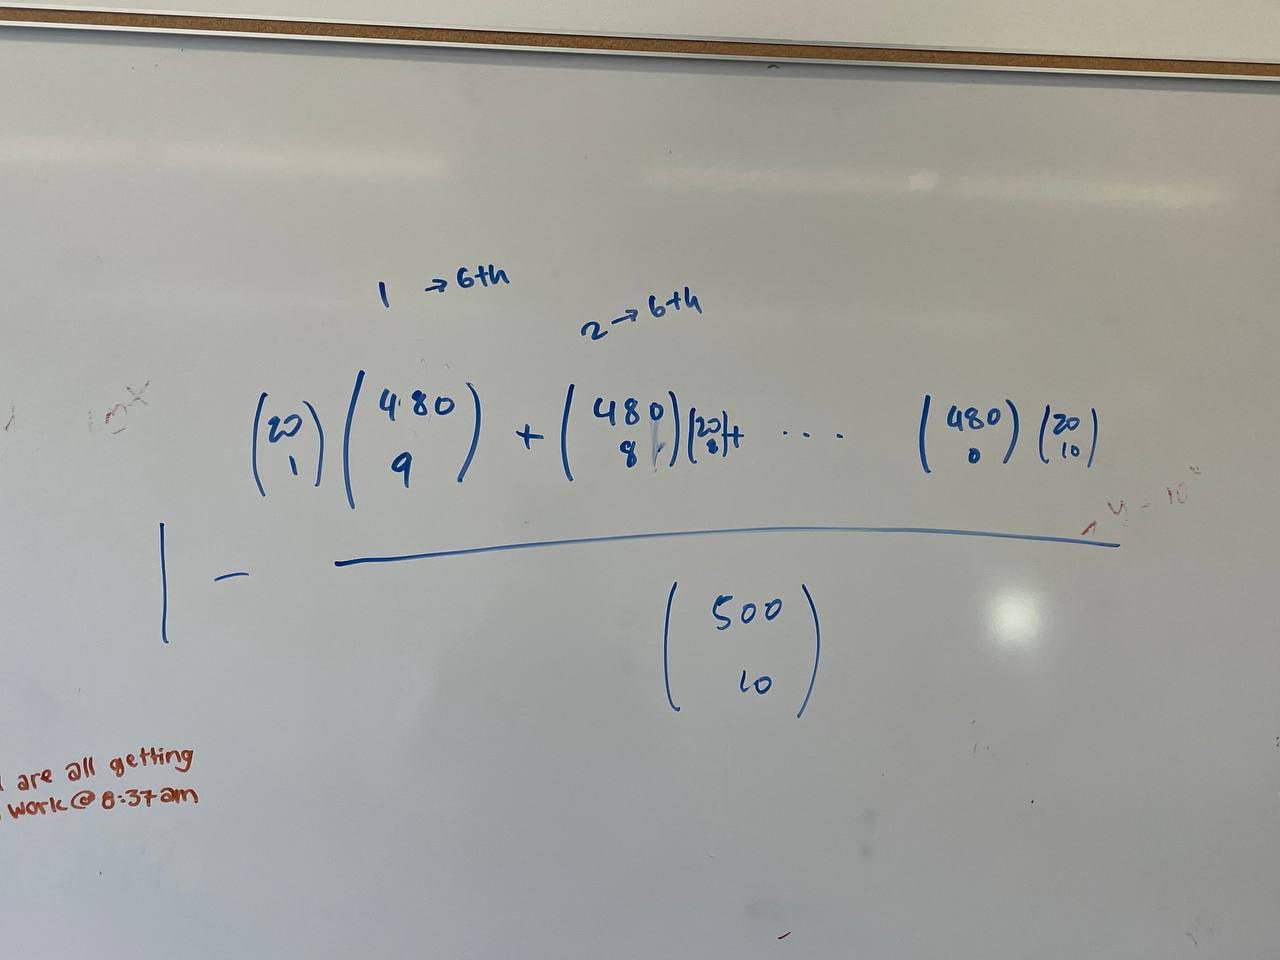 1 → 6th
2 → 6th
(20 1) (480 9) + (480 8) (20 8) + ... (480 0) (20 10)
1 −
(500 10)
are all getting
work @ 8:37am